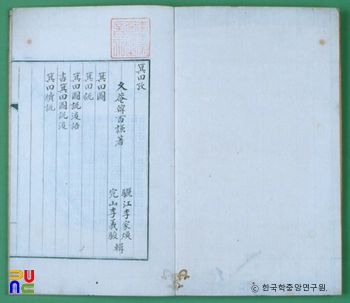 箕田攷
久菴韓百謙著
驪江李家煥
完山李義駿 輯
箕田圖
箕田說
箕田圖說後語
書箕田圖說後
箕田續說
© 한국학중앙연구원.